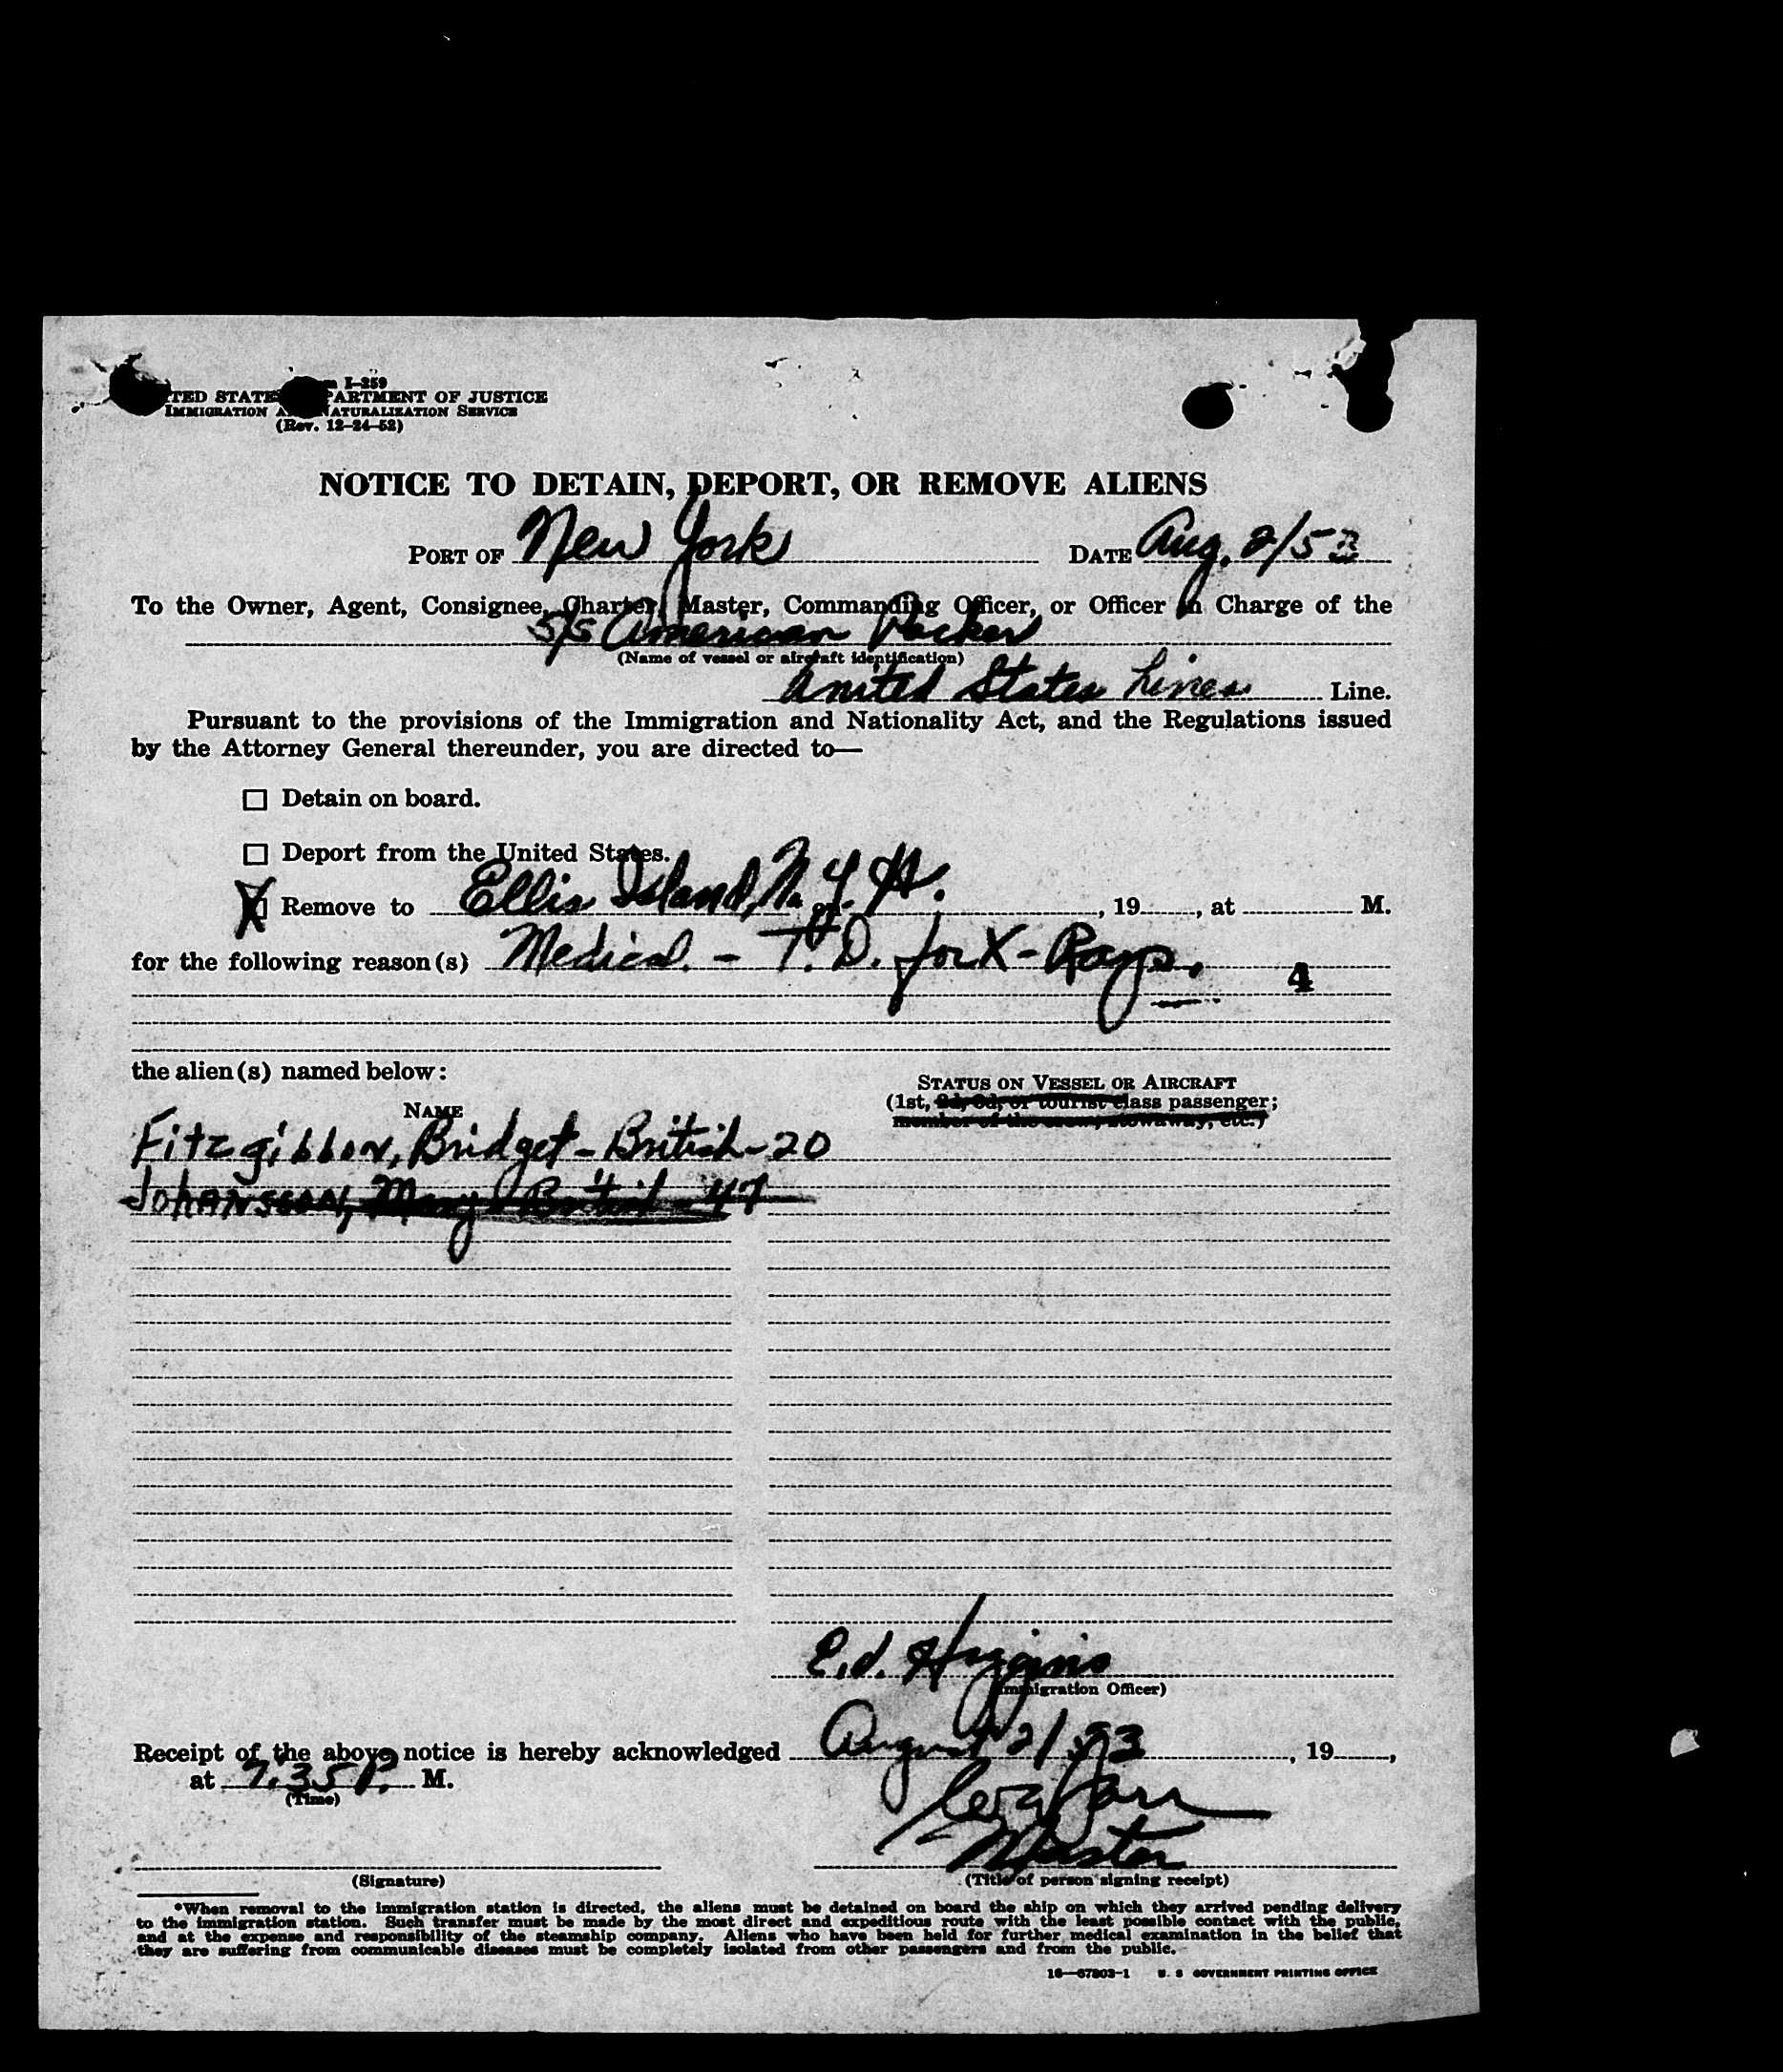 I-259
TED STATE PARTMENT OF JUSTICE
IMMIGRATION A NATURALIZATION SERVICE
(Rev. 12-24-52)
NOTICE TO DETAIN, DEPORT, OR REMOVE ALIENS
PORT OF New York DATE Aug. 2/53
To the Owner, Agent, Consignee, Charter, Master, Commanding Officer, or Officer in Charge of the
S/S American Packer
(Name of vessel or aircraft identification)
United States Lines Line.
Pursuant to the provisions of the Immigration and Nationality Act, and the Regulations issued
by the Attorney General thereunder, you are directed to—
☐ Detain on board.
☐ Deport from the United States.
☒ Remove to Ellis Island, N. Y. H. , 19 , at M.
for the following reason(s) Medical. - T.D. for X-Rays. 4
the alien(s) named below:
STATUS ON VESSEL OR AIRCRAFT
NAME (1st, 2d, 3d, or tourist class passenger;
member of the crew, stowaway, etc.)
Fitzgibbon, Bridget - British - 20
Johansson, Mary British - 47
E.J. Higgins
(Immigration Officer)
Receipt of the above notice is hereby acknowledged August 2/53 , 19 ,
at 7.35 P. M.
(Time)
Master
(Signature) (Title of person signing receipt)
*When removal to the immigration station is directed, the aliens must be detained on board the ship on which they arrived pending delivery
to the immigration station. Such transfer must be made by the most direct and expeditious route with the least possible contact with the public,
and at the expense and responsibility of the steamship company. Aliens who have been held for further medical examination in the belief that
they are suffering from communicable diseases must be completely isolated from other passengers and from the public.
16—67803-1 U. S. GOVERNMENT PRINTING OFFICE